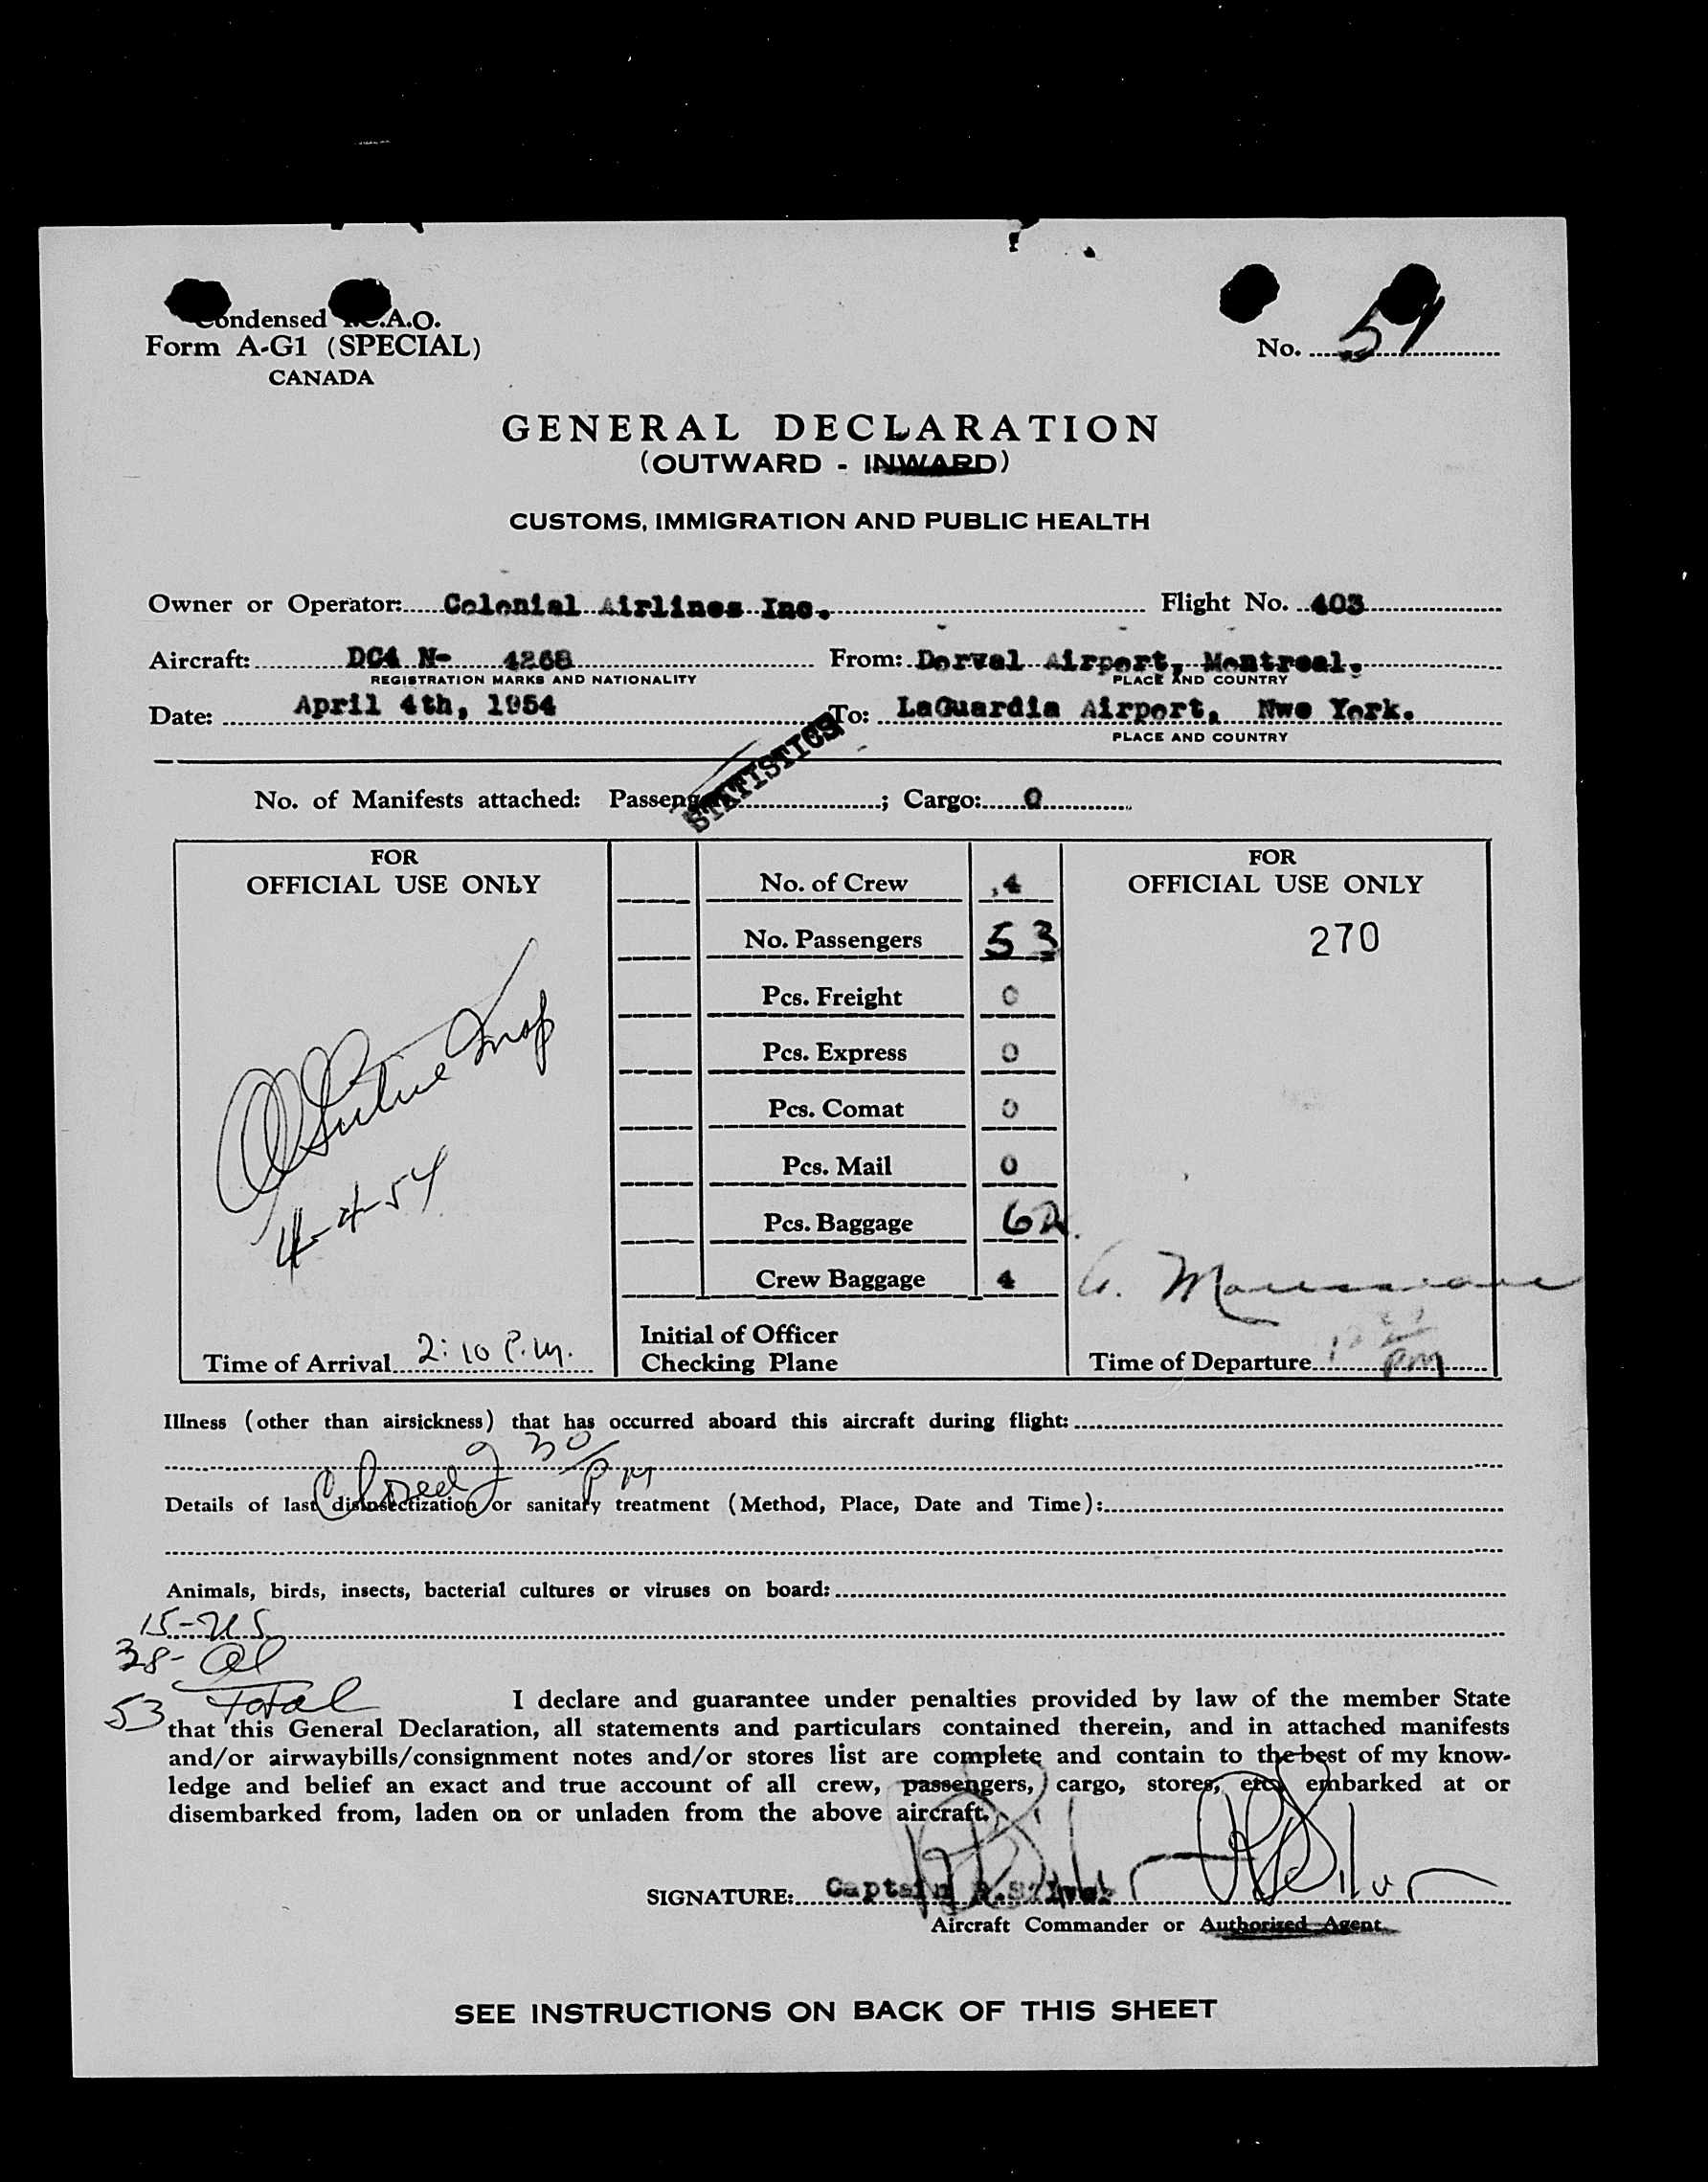 Condensed I.C.A.O.
Form A-G1 (SPECIAL)
CANADA
No. 59
GENERAL DECLARATION
(OUTWARD - INWARD)
CUSTOMS, IMMIGRATION AND PUBLIC HEALTH
Owner or Operator: Colonial Airlines Inc. Flight No. 403
Aircraft: DC4 N- 4268 From: Dorval Airport, Montreal.
REGISTRATION MARKS AND NATIONALITY PLACE AND COUNTRY
Date: April 4th, 1954 To: LaGuardia Airport, Nwe York.
PLACE AND COUNTRY
STATISTICS
No. of Manifests attached: Passenger ; Cargo: 0
FOR
OFFICIAL USE ONLY
4-4-54
Time of Arrival 2:10 P.M.
No. of Crew 4
No. Passengers 53
Pcs. Freight 0
Pcs. Express 0
Pcs. Comat 0
Pcs. Mail 0
Pcs. Baggage 62
Crew Baggage 4
Initial of Officer
Checking Plane
FOR
OFFICIAL USE ONLY
270
Time of Departure PM
Illness (other than airsickness) that has occurred aboard this aircraft during flight:
Closed 2 30 PM
Details of last disinsectization or sanitary treatment (Method, Place, Date and Time):
Animals, birds, insects, bacterial cultures or viruses on board:
15-US
38-Al
53 Total
I declare and guarantee under penalties provided by law of the member State
that this General Declaration, all statements and particulars contained therein, and in attached manifests
and/or airwaybills/consignment notes and/or stores list are complete and contain to the best of my know-
ledge and belief an exact and true account of all crew, passengers, cargo, stores, etc. embarked at or
disembarked from, laden on or unladen from the above aircraft.
SIGNATURE: Captain R.Silver
Aircraft Commander or Authorized Agent
SEE INSTRUCTIONS ON BACK OF THIS SHEET